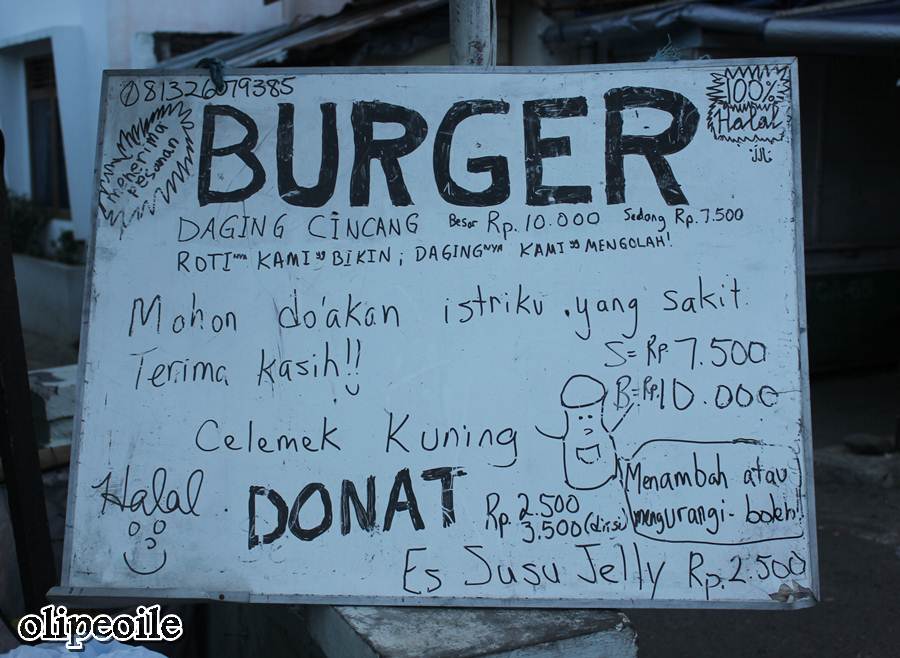 081326079385
Menerima
Pesanan
BURGER
100%
Halal
DAGING CINCANG Besar Rp. 10.000 Sedang Rp. 7.500
ROTInya KAMI yg BIKIN ; DAGINGnya KAMI yg MENGOLAH!
Mohon do'akan istriku yang sakit
Terima kasih!!
S = Rp 7.500
B = Rp. 10.000
Celemek Kuning
Halal
DONAT Rp. 2.500
3.500 (diisi)
Menambah atau
mengurangi - boleh!!
Es Susu Jelly Rp. 2.500
olipeoile